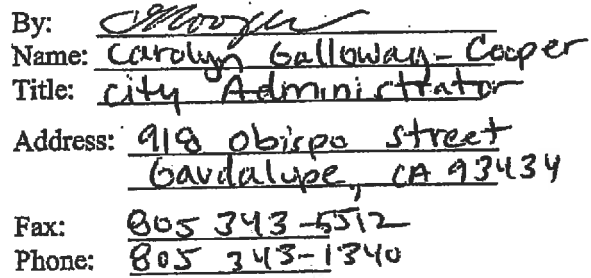 By:
Name: Carolyn Galloway-Cooper
Title: City Administrator
Address: 918 Obispo Street
Guadalupe, CA 93434
Fax: 805 343-5512
Phone: 805 343-1340